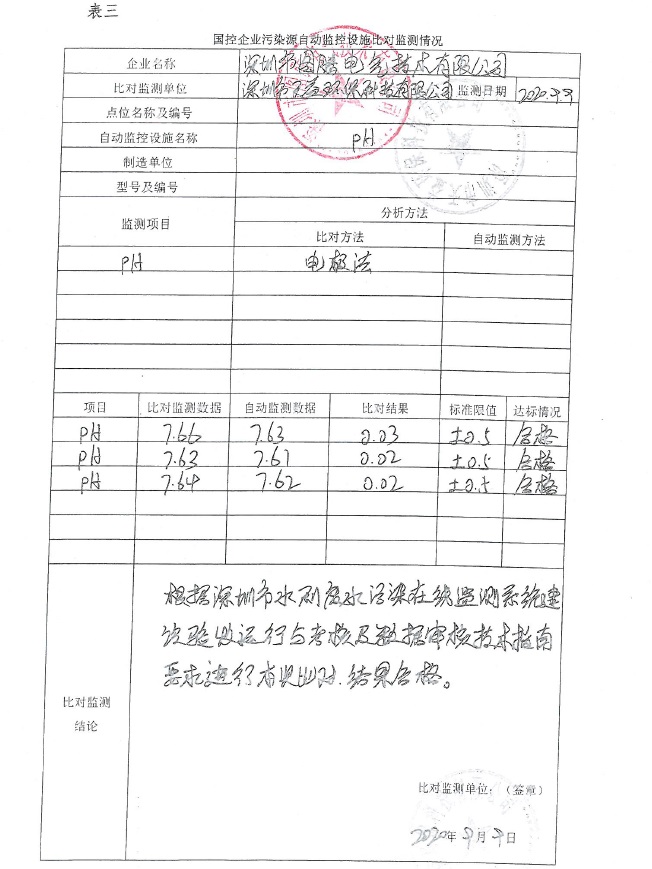 表三
国控企业污染源自动监控设施比对监测情况
企业名称 深圳市图腾电气技术有限公司
比对监测单位 深圳市天益环保科技有限公司 监测日期 2020.9.9
点位名称及编号
自动监控设施名称 pH
制造单位
型号及编号
监测项目 分析方法
比对方法 自动监测方法
pH 电极法
项目 比对监测数据 自动监测数据 比对结果 标准限值 达标情况
pH 7.66 7.63 0.03 ±0.5 合格
pH 7.63 7.61 0.02 ±0.5 合格
pH 7.64 7.62 0.02 ±0.5 合格
根据深圳市水废水污染在线监测系统建
设验收运行与考核及数据审核技术指南
要求进行比对.结果合格。
比对监测
结论
比对监测单位：（签章）
2020年9月9日